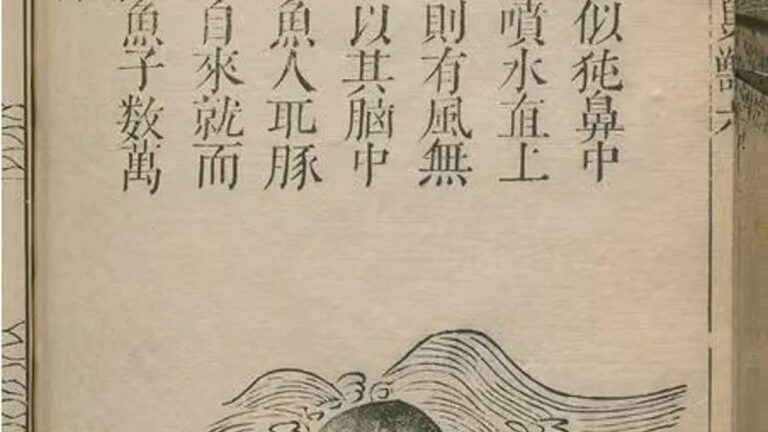 似㹠鼻中
噴水直上
則有風無
以其脑中
魚人取豚
自來就而
魚子数萬